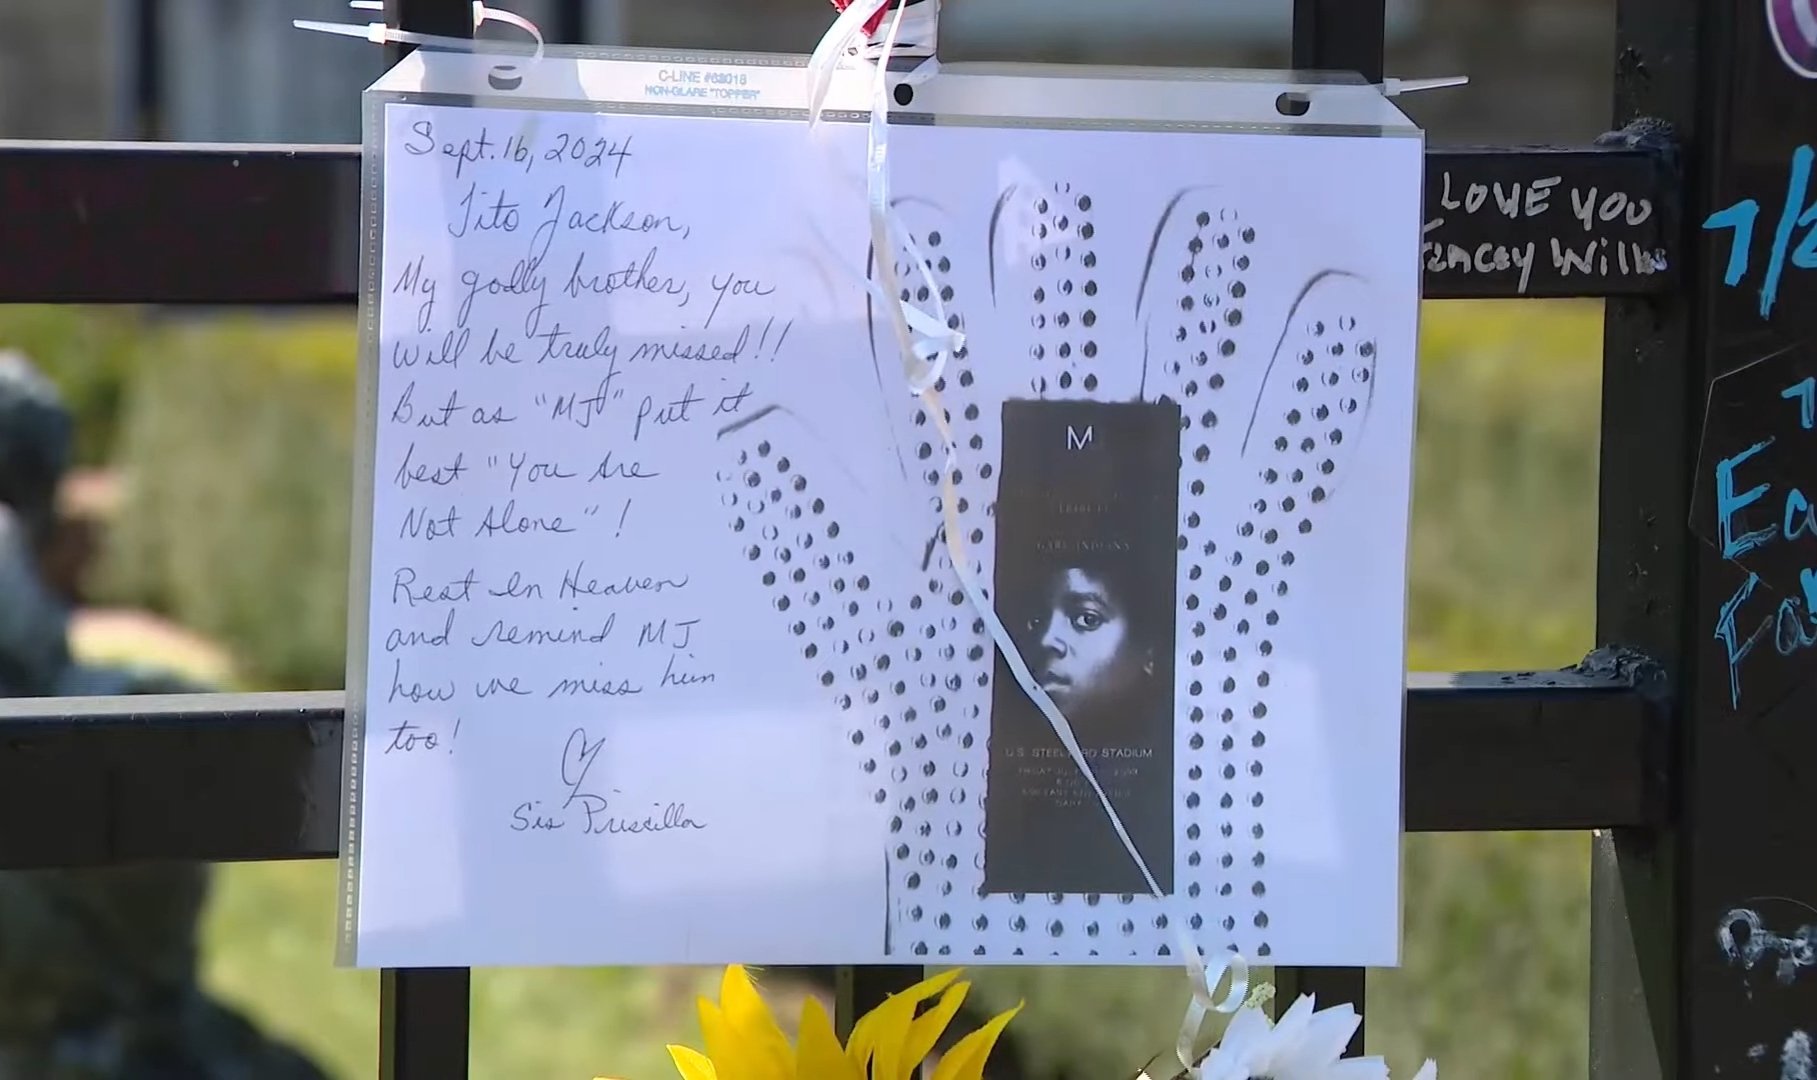 C-LINE #62018
NON-GLARE "TOPPER"
Sept. 16, 2024
Tito Jackson,
My godly brother, you
will be truly missed!!
But as "MJ" put it
best "You Are
Not Alone"!
Rest In Heaven
and remind MJ
how we miss him
too!
Sis Priscilla
M
GARY, INDIANA
U.S. STEEL STADIUM
LOVE YOU
7/2